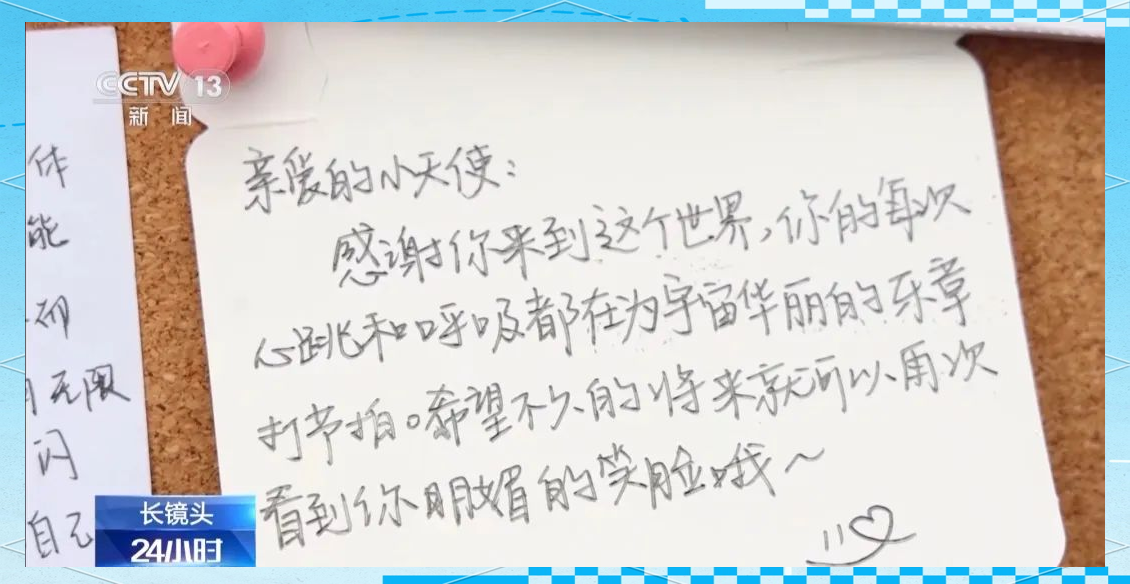 CCTV 13
新闻
体
能
无限
闪
自己
亲爱的小天使：
感谢你来到这个世界，你的每次
心跳和呼吸都在为宇宙华丽的乐章
打节拍。希望不久的将来就可以再次
看到你明媚的笑脸哦～
长镜头
24小时